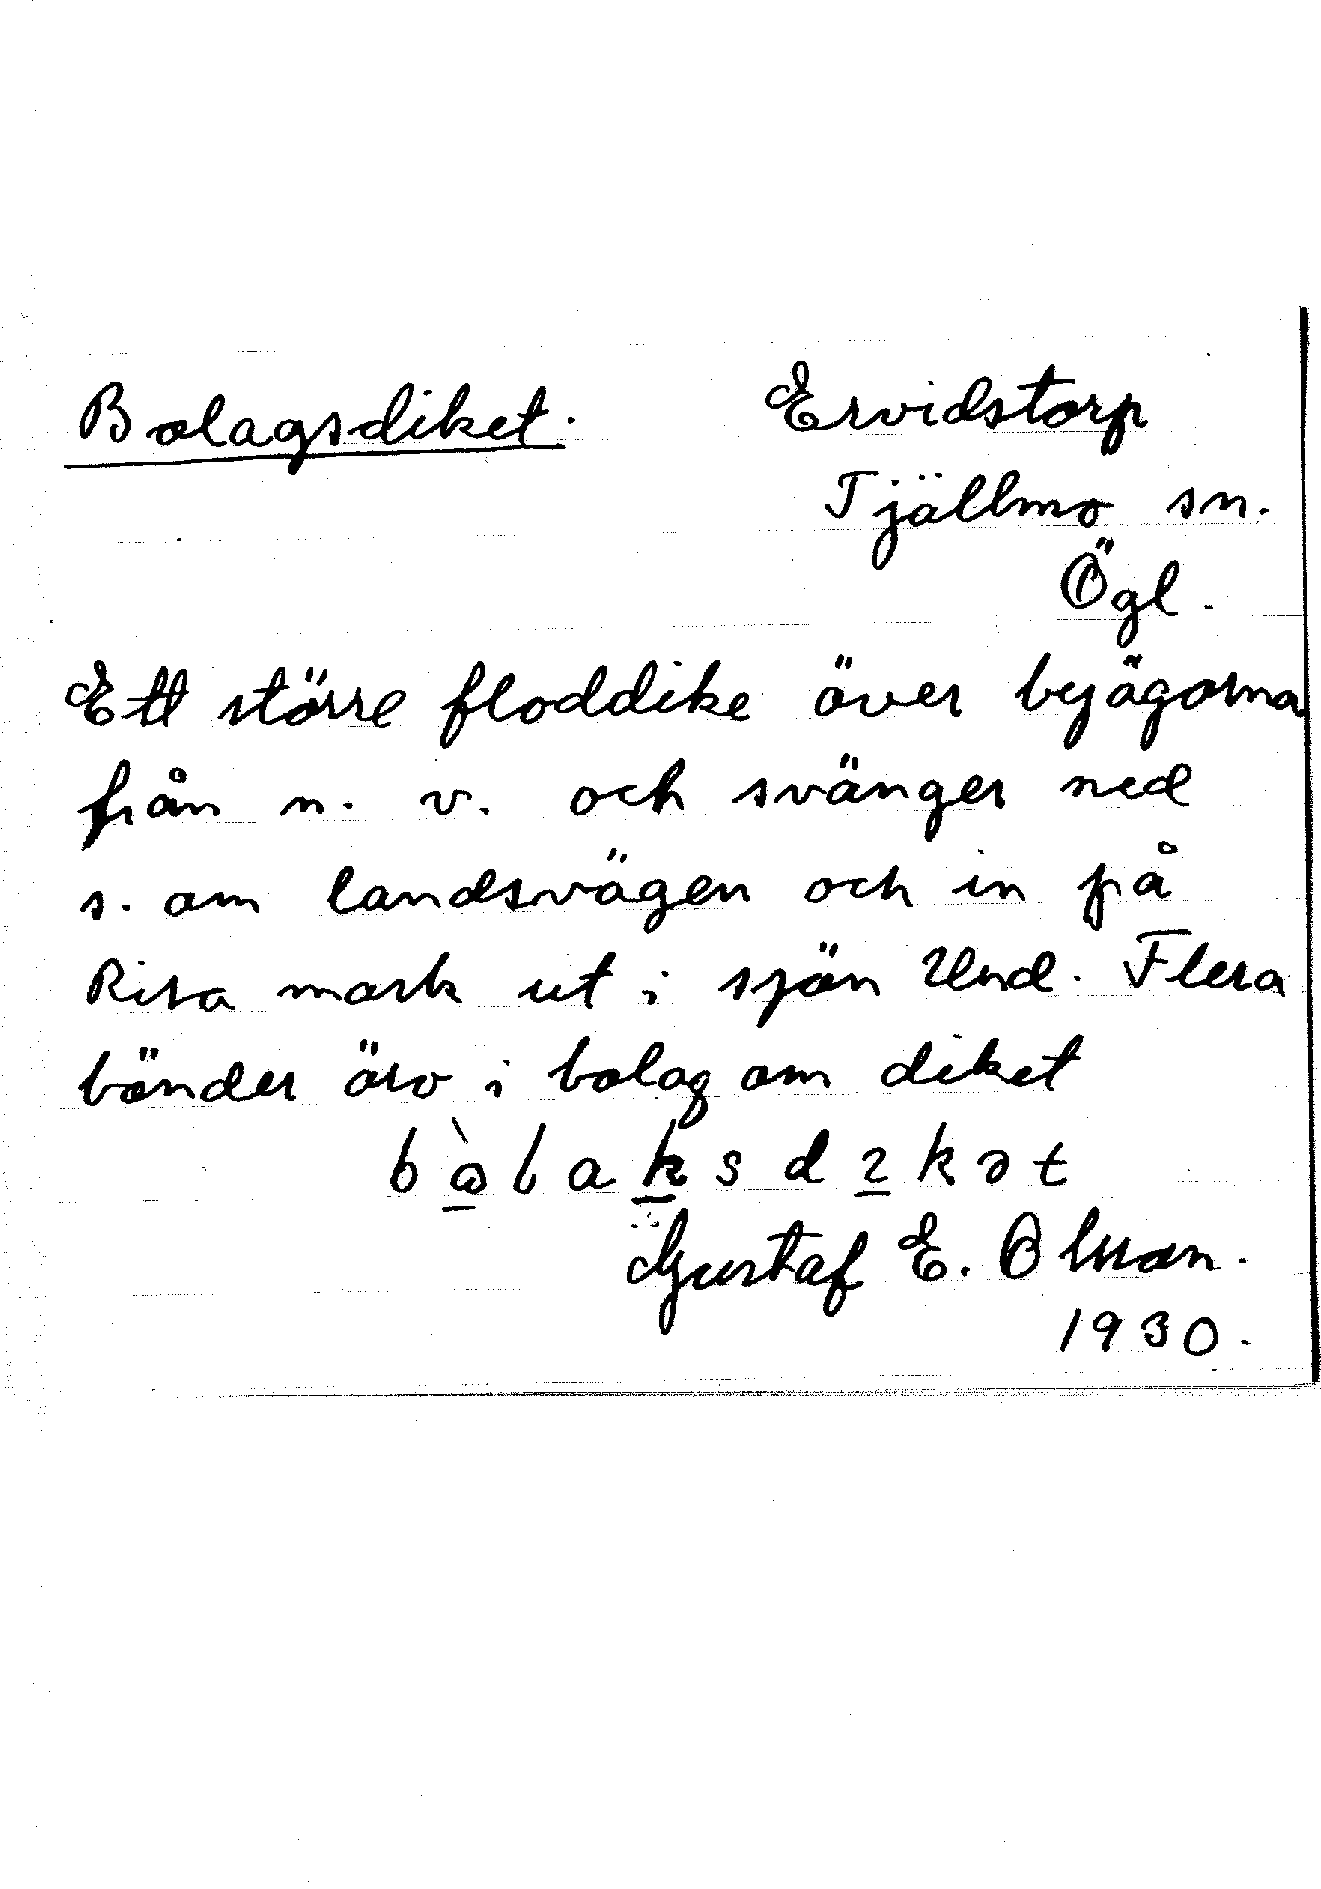 Bolagsdiket.
Ervidstorp
Tjällmo sn.
Ögl.
Ett större floddike över byägorna
från n. v. och svänger ned
s. om landsvägen och in på
Risa mark ut i sjön Und. Flera
bönder äro i bolag om diket
bòlaksdikət
Gustaf E. Olsson.
1930.